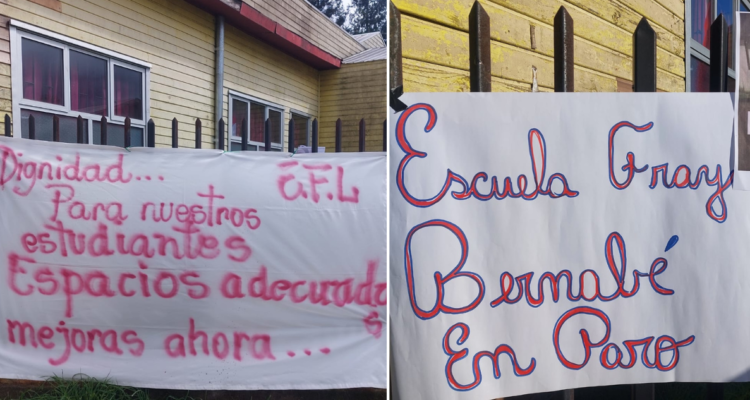 Dignidad...
E.F.L
Para nuestros
estudiantes
Espacios adecuados
mejoras ahora...
Escuela Fray
Bernabé
En Paro